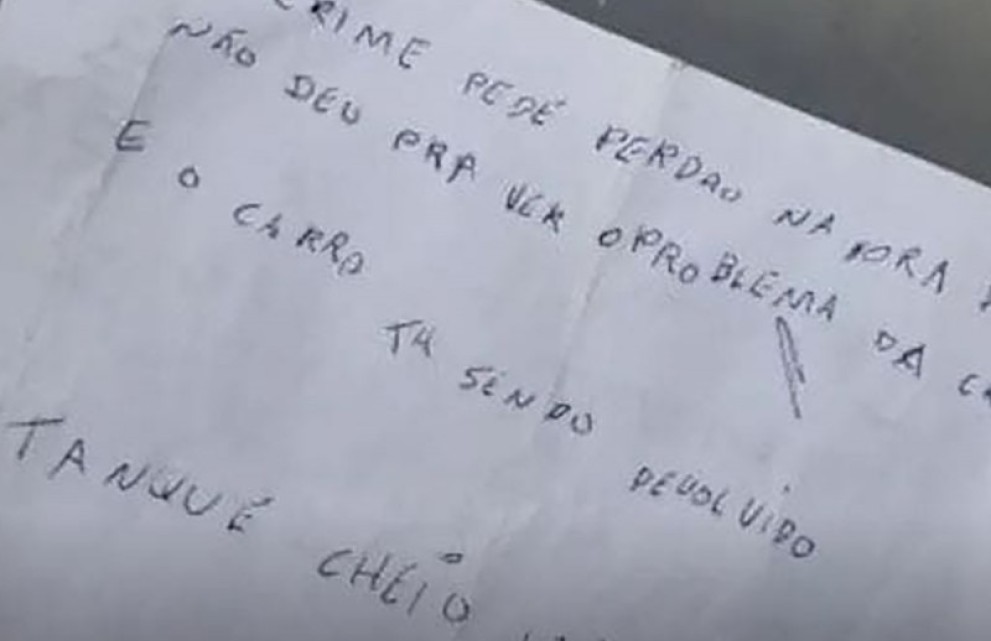 CRIME PEDE PERDAO NA HORA
NÃO DEU PRA VER O PROBLEMA DA
E O CARRO TA SENDO DEVOLVIDO
TANQUE CHEIO